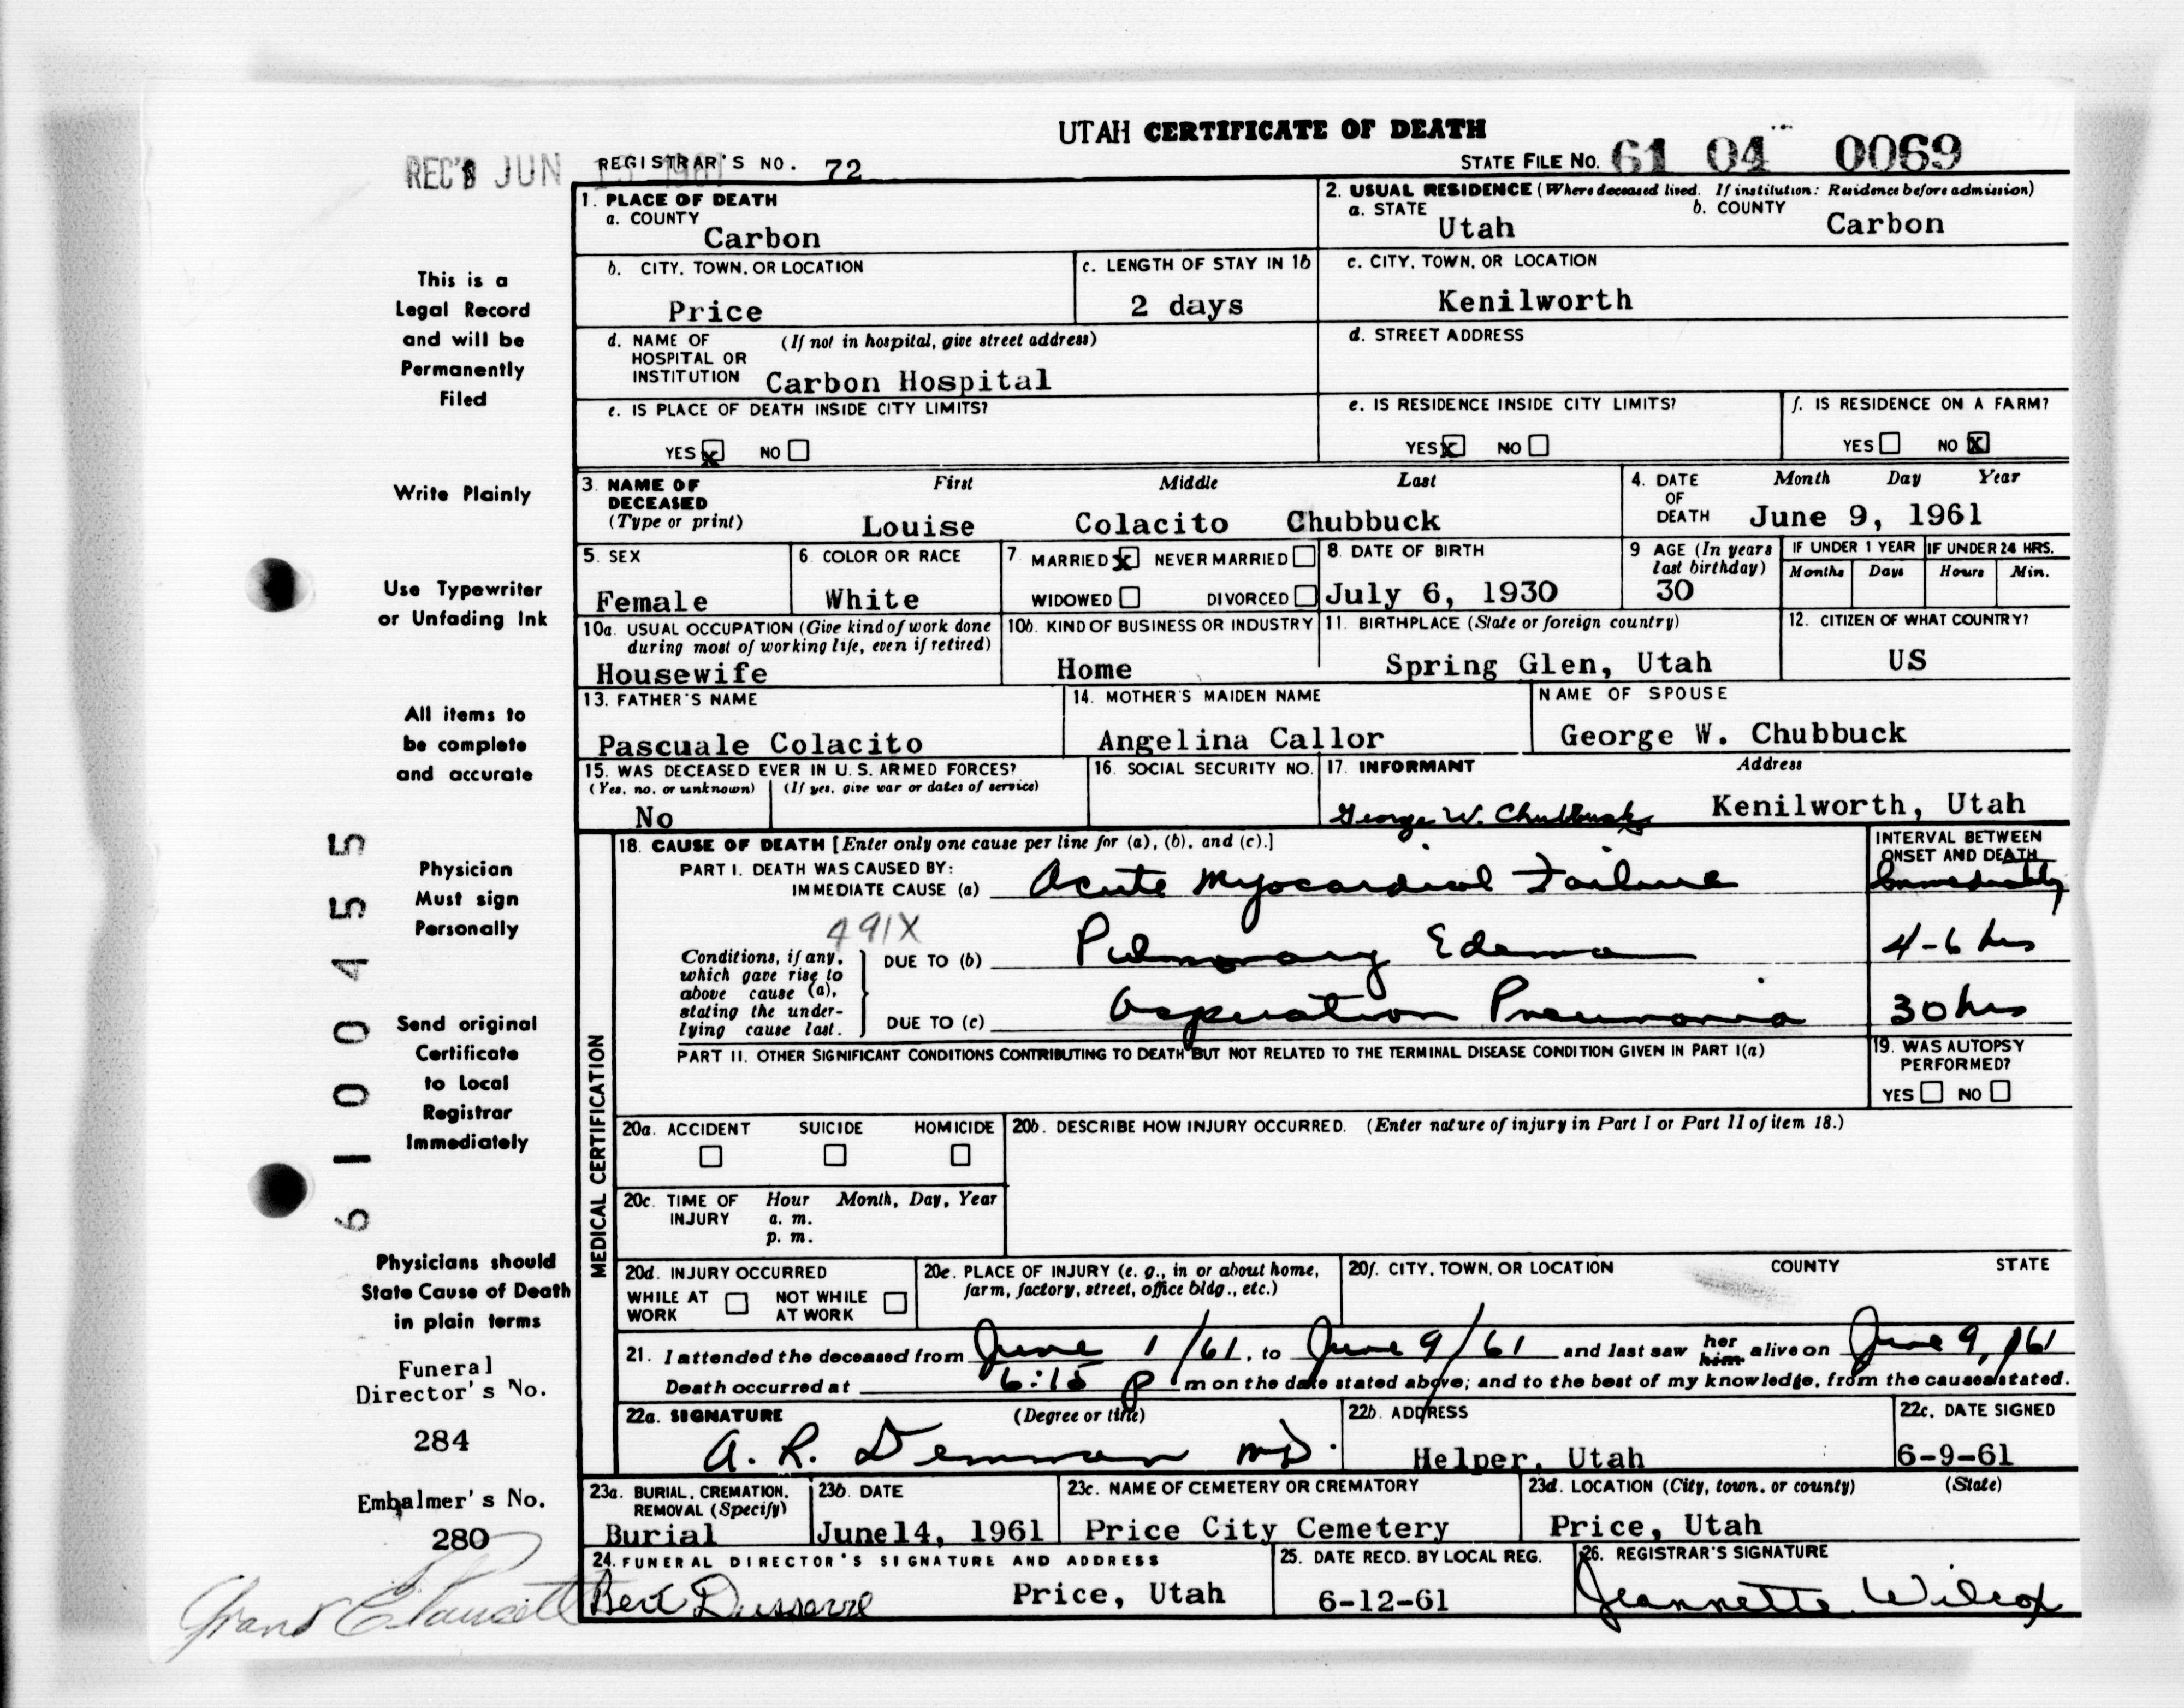 UTAH CERTIFICATE OF DEATH
REC'D JUN 13 1961
REGISTRAR'S NO. 72
STATE FILE NO. 61 04 0069
1. PLACE OF DEATH
a. COUNTY
Carbon
2. USUAL RESIDENCE (Where deceased lived. If institution: Residence before admission)
a. STATE
Utah
b. COUNTY
Carbon
b. CITY, TOWN, OR LOCATION
Price
c. LENGTH OF STAY IN 1b
2 days
c. CITY, TOWN, OR LOCATION
Kenilworth
d. NAME OF (If not in hospital, give street address)
HOSPITAL OR
INSTITUTION Carbon Hospital
d. STREET ADDRESS
e. IS PLACE OF DEATH INSIDE CITY LIMITS?
YES X NO
e. IS RESIDENCE INSIDE CITY LIMITS?
YES X NO
f. IS RESIDENCE ON A FARM?
YES NO X
3. NAME OF DECEASED
(Type or print)
First Middle Last
Louise Colacito Chubbuck
4. DATE OF DEATH
Month Day Year
June 9, 1961
5. SEX
Female
6. COLOR OR RACE
White
7. MARRIED X NEVER MARRIED
WIDOWED DIVORCED
8. DATE OF BIRTH
July 6, 1930
9 AGE (In years
last birthday)
30
IF UNDER 1 YEAR
Months Days
IF UNDER 24 HRS.
Hours Min.
10a. USUAL OCCUPATION (Give kind of work done
during most of working life, even if retired)
Housewife
10b. KIND OF BUSINESS OR INDUSTRY
Home
11. BIRTHPLACE (State or foreign country)
Spring Glen, Utah
12. CITIZEN OF WHAT COUNTRY?
US
13. FATHER'S NAME
Pascuale Colacito
14. MOTHER'S MAIDEN NAME
Angelina Callor
NAME OF SPOUSE
George W. Chubbuck
15. WAS DECEASED EVER IN U.S. ARMED FORCES?
(Yes, no, or unknown) (If yes, give war or dates of service)
No
16. SOCIAL SECURITY NO.
17. INFORMANT Address
George W. Chubbuck Kenilworth, Utah
MEDICAL CERTIFICATION
18. CAUSE OF DEATH [Enter only one cause per line for (a), (b), and (c).]
INTERVAL BETWEEN
ONSET AND DEATH
PART I. DEATH WAS CAUSED BY:
IMMEDIATE CAUSE (a) Acute Myocardial Failure Immediately
491X
Conditions, if any,
which gave rise to
above cause (a),
stating the under-
lying cause last.
DUE TO (b) Pulmonary Edema 4-6 hrs
DUE TO (c) Aspiration Pneumonia 30 hrs
PART II. OTHER SIGNIFICANT CONDITIONS CONTRIBUTING TO DEATH BUT NOT RELATED TO THE TERMINAL DISEASE CONDITION GIVEN IN PART I(a)
19. WAS AUTOPSY
PERFORMED?
YES NO
20a. ACCIDENT SUICIDE HOMICIDE
20b. DESCRIBE HOW INJURY OCCURRED. (Enter nature of injury in Part I or Part II of item 18.)
20c. TIME OF INJURY
Hour Month, Day, Year
a. m.
p. m.
20d. INJURY OCCURRED
WHILE AT WORK NOT WHILE AT WORK
20e. PLACE OF INJURY (e. g., in or about home,
farm, factory, street, office bldg., etc.)
20f. CITY, TOWN, OR LOCATION COUNTY STATE
21. I attended the deceased from June 1/61, to June 9/61 and last saw her him alive on June 9, /61
Death occurred at 6:15 P m on the date stated above; and to the best of my knowledge, from the causes stated.
22a. SIGNATURE (Degree or title)
A. R. Demman MD.
22b. ADDRESS
Helper, Utah
22c. DATE SIGNED
6-9-61
23a. BURIAL, CREMATION,
REMOVAL (Specify)
Burial
23b. DATE
June14, 1961
23c. NAME OF CEMETERY OR CREMATORY
Price City Cemetery
23d. LOCATION (City, town, or county) (State)
Price, Utah
24. FUNERAL DIRECTOR'S SIGNATURE AND ADDRESS
Bert Dusserre Price, Utah
25. DATE RECD. BY LOCAL REG.
6-12-61
26. REGISTRAR'S SIGNATURE
Jeannette Wilcox
This is a
Legal Record
and will be
Permanently
Filed
Write Plainly
Use Typewriter
or Unfading Ink
All items to
be complete
and accurate
Physician
Must sign
Personally
Send original
Certificate
to Local
Registrar
Immediately
Physicians should
State Cause of Death
in plain terms
Funeral
Director's No.
284
Embalmer's No.
280
6100455